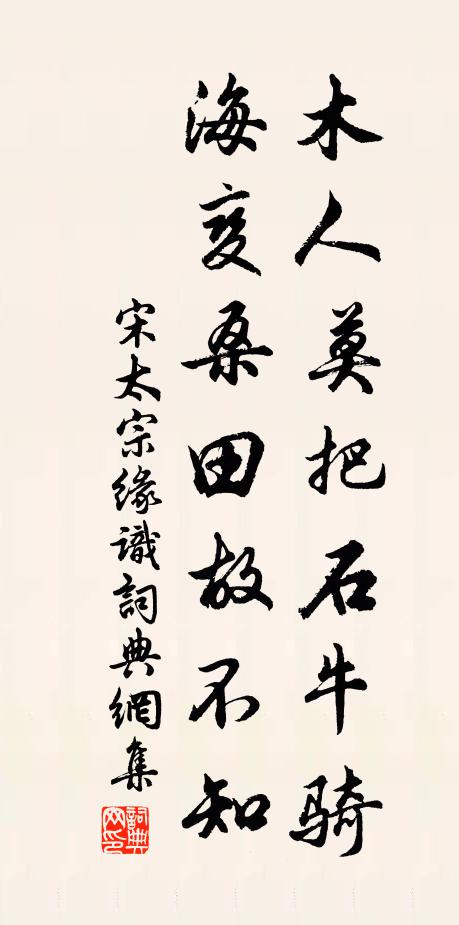 木人莫把石牛骑
海变桑田故不知
宋太宗缘識詞典網集
詞典网印